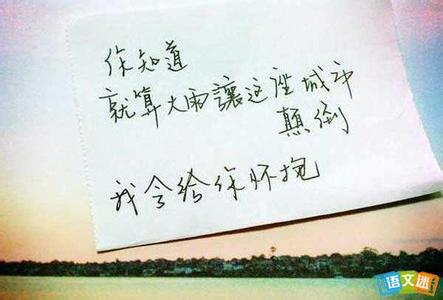 你知道
就算大雨讓这座城市
顛倒
我会给你怀抱
语文迷